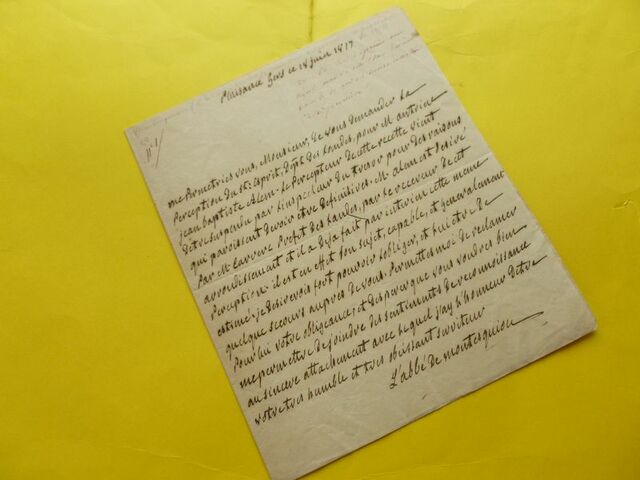 Plaisance Gers ce 14 juin 1817
me Permetriés vous, Monsieur, de vous demander la
Perception du St. Esprit, dépt. des Landes, pour M antoine
jean baptiste alem. le Percepteur de cette recette vient
d'etre suspendu par l'inspecteur du tresor pour des raisons
qui paroissent devoir etre definitives. M. alem est desiré
Par M. Carrere Prefet des Landes, par le receveur de cet
arrondissement et il a deja fait par interim cette meme
Perception. il est en effet bon sujet, capable, et generalement
estimé. je desirerois fort pouvoir l'obliger, et lui etre de
quelque secours aupres de vous. Permettes moi de reclamer
Pour lui votre obligeance, et d'esperer que vous voudres bien
me permettre de joindre des sentiments de reconnoissance
au sincere attachement avec lequel j'ay l'honneur d'etre
votre tres humble et tres obeissant serviteur
L'abbé de montesquiou